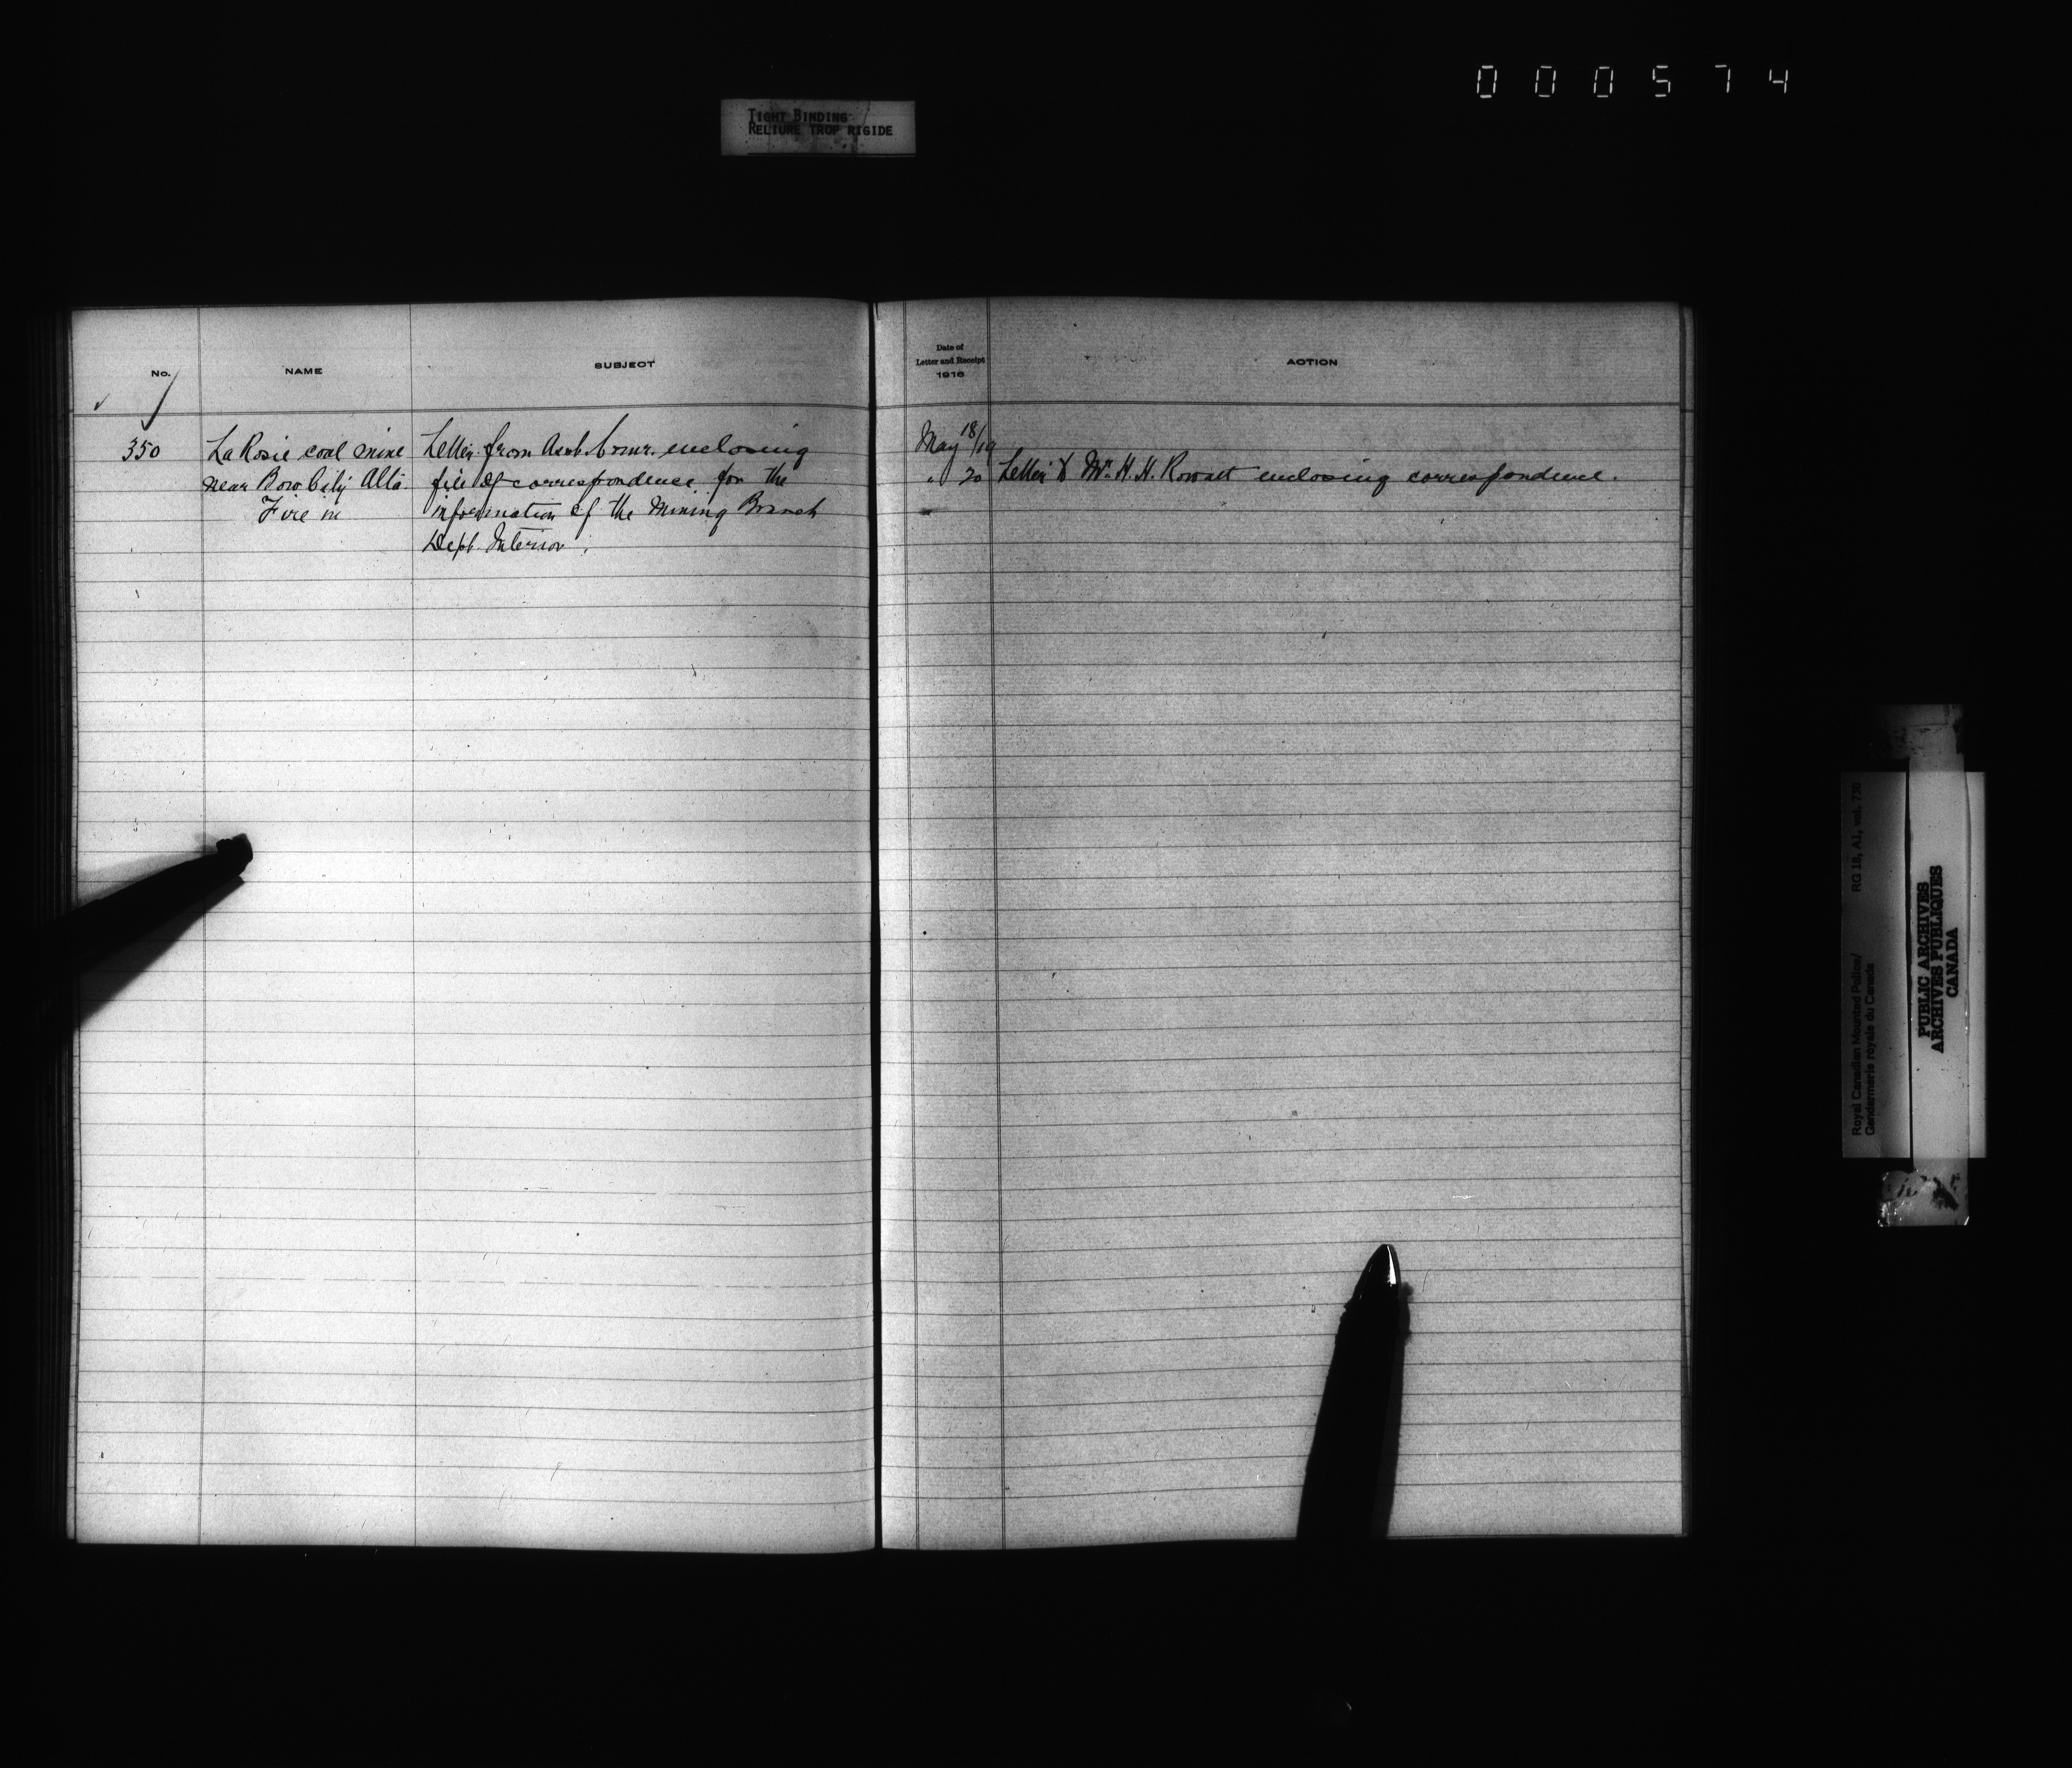 000574
TIGHT BINDING
RELIURE TROP RIGIDE
No.
NAME
SUBJECT
Date of
Letter and Receipt
1916
ACTION
350
LaRosie coal mine
near Bow City Alta.
Fire in
Letter from Asst. Comr. enclosing
file of correspondence for the
information of the Mining Branch
Dept. Interior.
May 18/19
" 20
Letter to Mr. H. H. Rowatt enclosing correspondence.
Royal Canadian Mounted Police/
Gendarmerie royale du Canada
RG 18, A1, vol. 730
PUBLIC ARCHIVES
ARCHIVES PUBLIQUES
CANADA